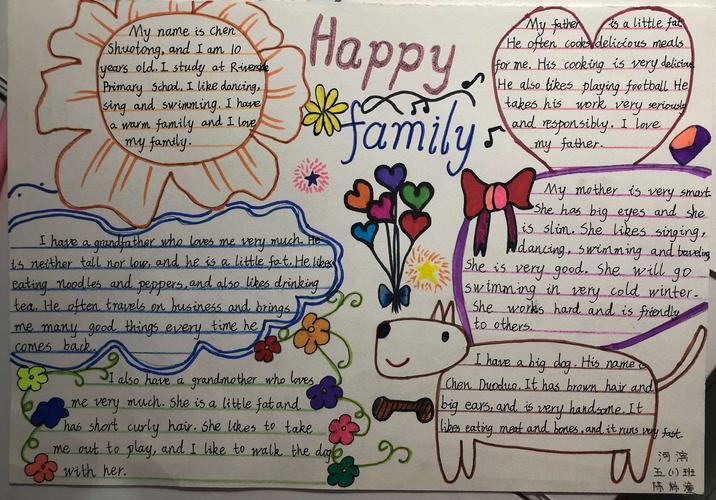 Happy
family
My name is Chen
Shuotong, and I am 10
years old. I study at Riverside
Primary School, I like dancing,
sing and swimming. I have
a warm family and I love
my family.
My father is a little fat.
He often cooks delicious meals
for me. His cooking is very delicious
He also likes playing football He
takes his work very seriously
and responsibly. I love
my father.
I have a grandfather who loves me very much. He
is neither tall nor low, and he is a little fat. He likes
eating noodles and peppers, and also likes drinking
tea. He often travels on business and brings
me many good things every time he
comes back.
My mother is very smart
She has big eyes and she
is slim. She likes singing,
dancing, swimming and traveling
She is very good. She will go
swimming in very cold winter.
She works hard and is friendly
to others.
I also have a grandmother who loves
me very much. She is a little fat and
has short curly hair. She likes to take
me out to play, and I like to walk the dog
with her.
I have a big dog. His name is
Chen Duoduo. It has brown hair and
big ears, and is very handsome. It
likes eating meat and bones, and it runs very fast.
河滨
五(1)班
陈